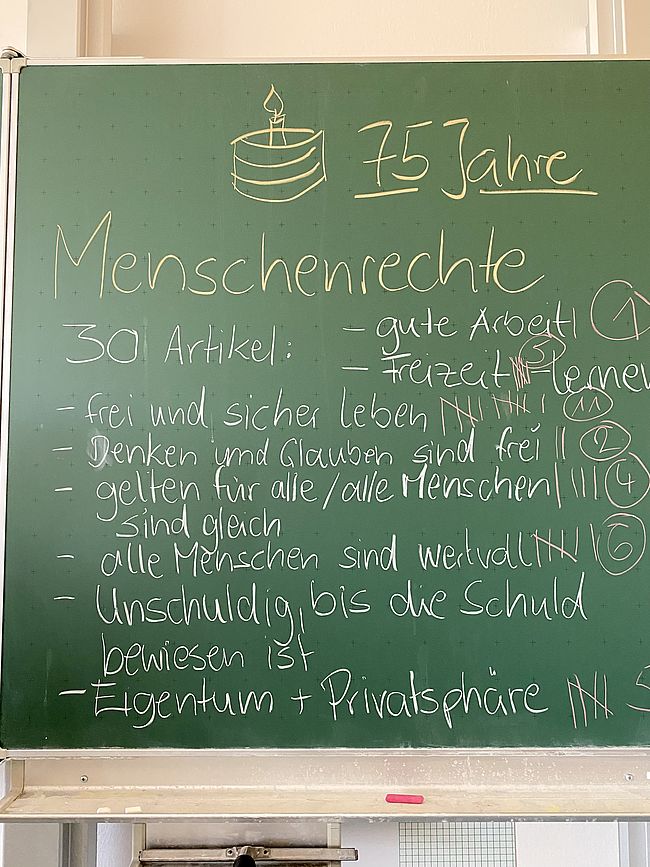 75 Jahre
Menschenrechte
30 Artikel: - gute Arbeit | 1
- Freizeit 5 - lernen
- frei und sicher leben |||| |||| | 11
- Denken und Glauben sind frei || 2
- gelten für alle / alle Menschen |||| 4
sind gleich
- alle Menschen sind wertvoll |||| | 6
- Unschuldig, bis die Schuld
bewiesen ist
- Eigentum + Privatsphäre |||| 5